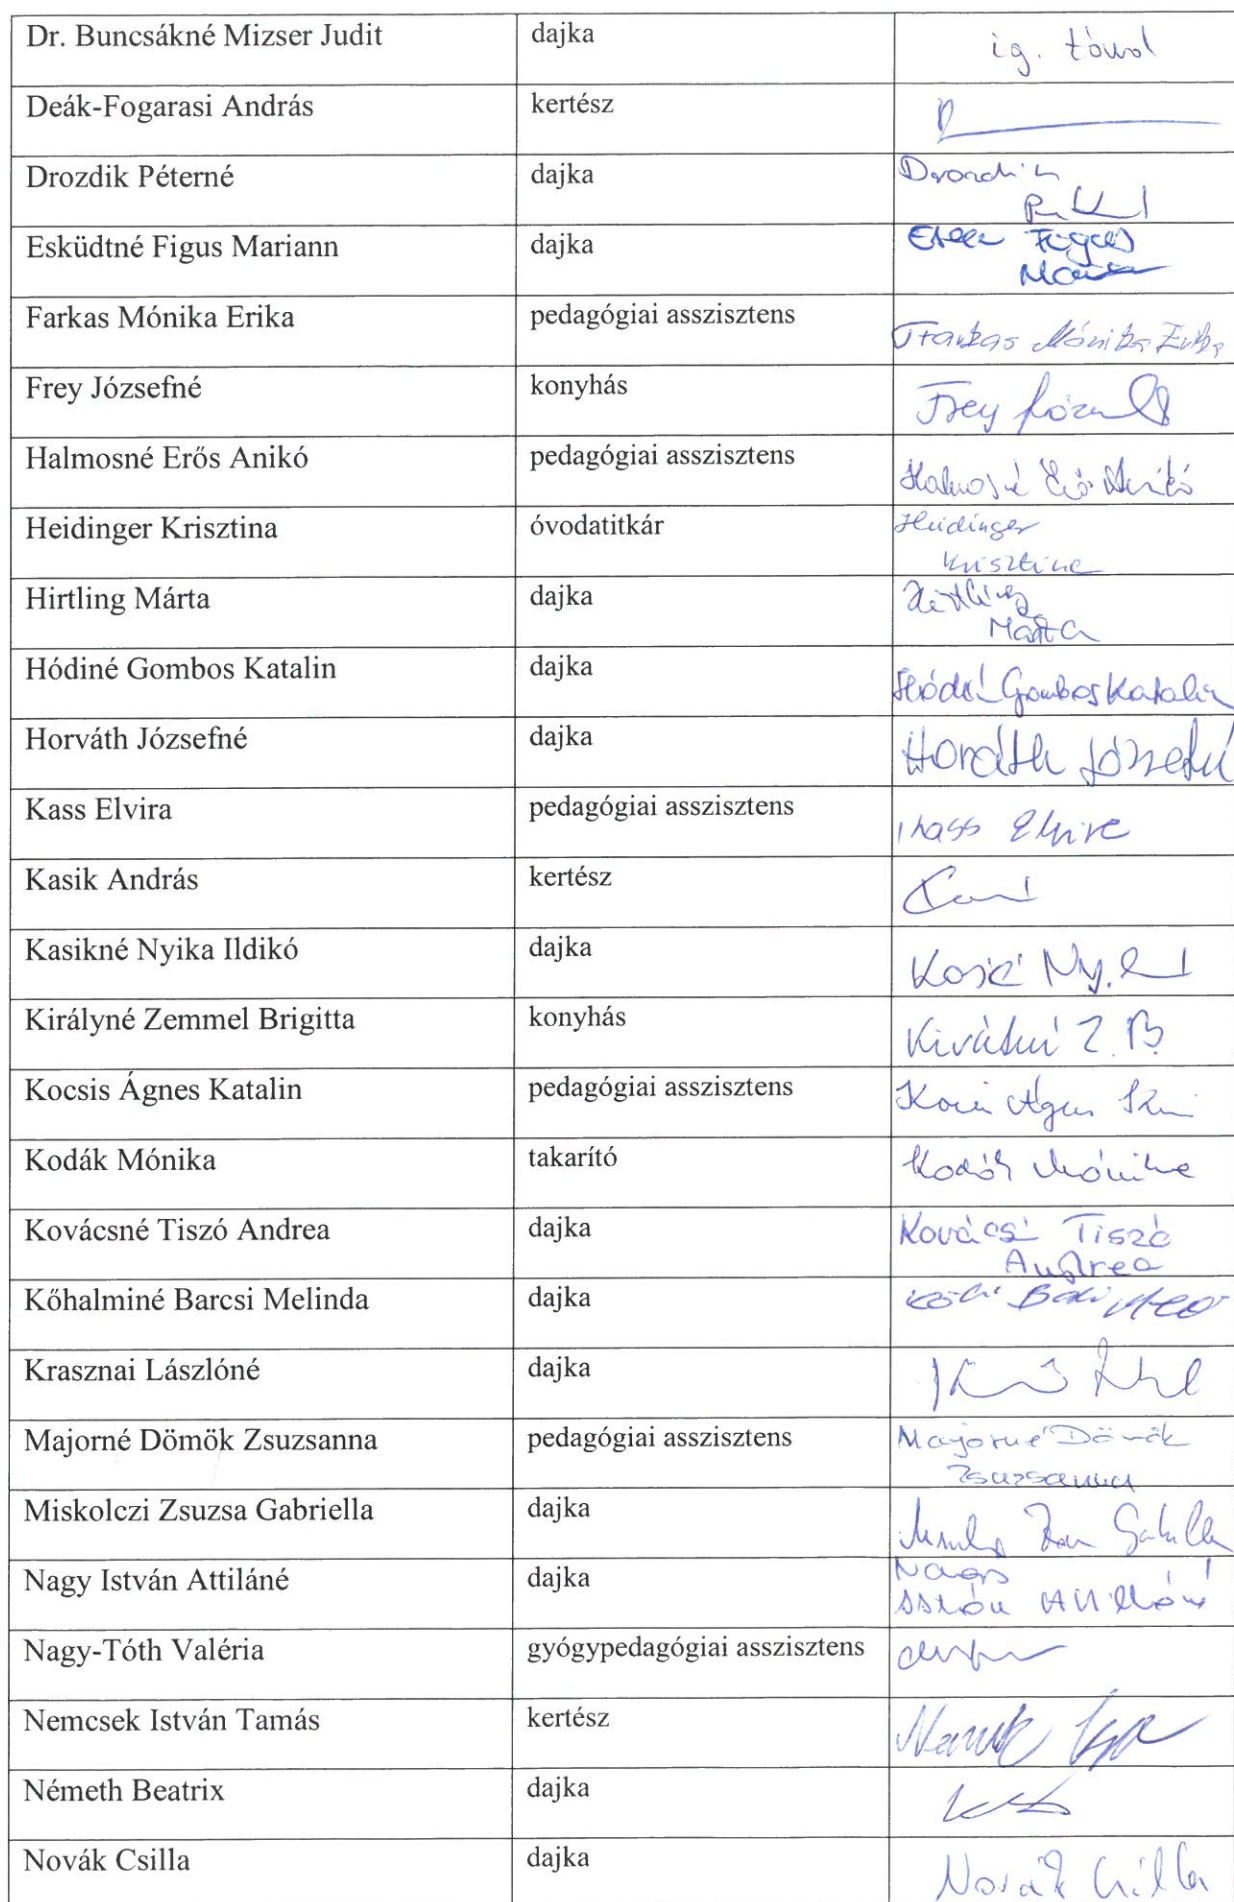 Dr. Buncsákné Mizser Judit dajka ig. távol
Deák-Fogarasi András kertész
Drozdik Péterné dajka Drozdik
Esküdtné Figus Mariann dajka Figus
Farkas Mónika Erika pedagógiai asszisztens Farkas Mónika Erika
Frey Józsefné konyhás Frey
Halmosné Erős Anikó pedagógiai asszisztens Halmosné Erős Anikó
Heidinger Krisztina óvodatitkár Heidinger
Krisztina
Hirtling Márta dajka Hirtling
Márta
Hódiné Gombos Katalin dajka Hódiné Gombos Katalin
Horváth Józsefné dajka Horváth Józsefné
Kass Elvira pedagógiai asszisztens Kass Elvira
Kasik András kertész
Kasikné Nyika Ildikó dajka
Királyné Zemmel Brigitta konyhás Királyné Z. B.
Kocsis Ágnes Katalin pedagógiai asszisztens
Kodák Mónika takarító Kodák Mónika
Kovácsné Tiszó Andrea dajka Kovácsné Tiszó
Andrea
Kőhalminé Barcsi Melinda dajka
Krasznai Lászlóné dajka
Majorné Dömök Zsuzsanna pedagógiai asszisztens Majorné Dömök
Zsuzsanna
Miskolczi Zsuzsa Gabriella dajka
Nagy István Attiláné dajka Nagy
István Attiláné
Nagy-Tóth Valéria gyógypedagógiai asszisztens
Nemcsek István Tamás kertész
Németh Beatrix dajka
Novák Csilla dajka Novák Csilla